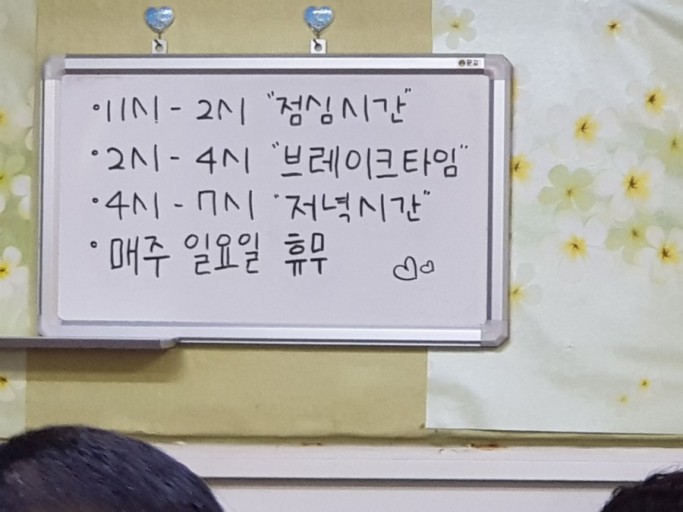 문교
•11시 - 2시 "점심시간"
•2시 - 4시 "브레이크타임"
•4시 - 7시 "저녁시간"
•매주 일요일 휴무